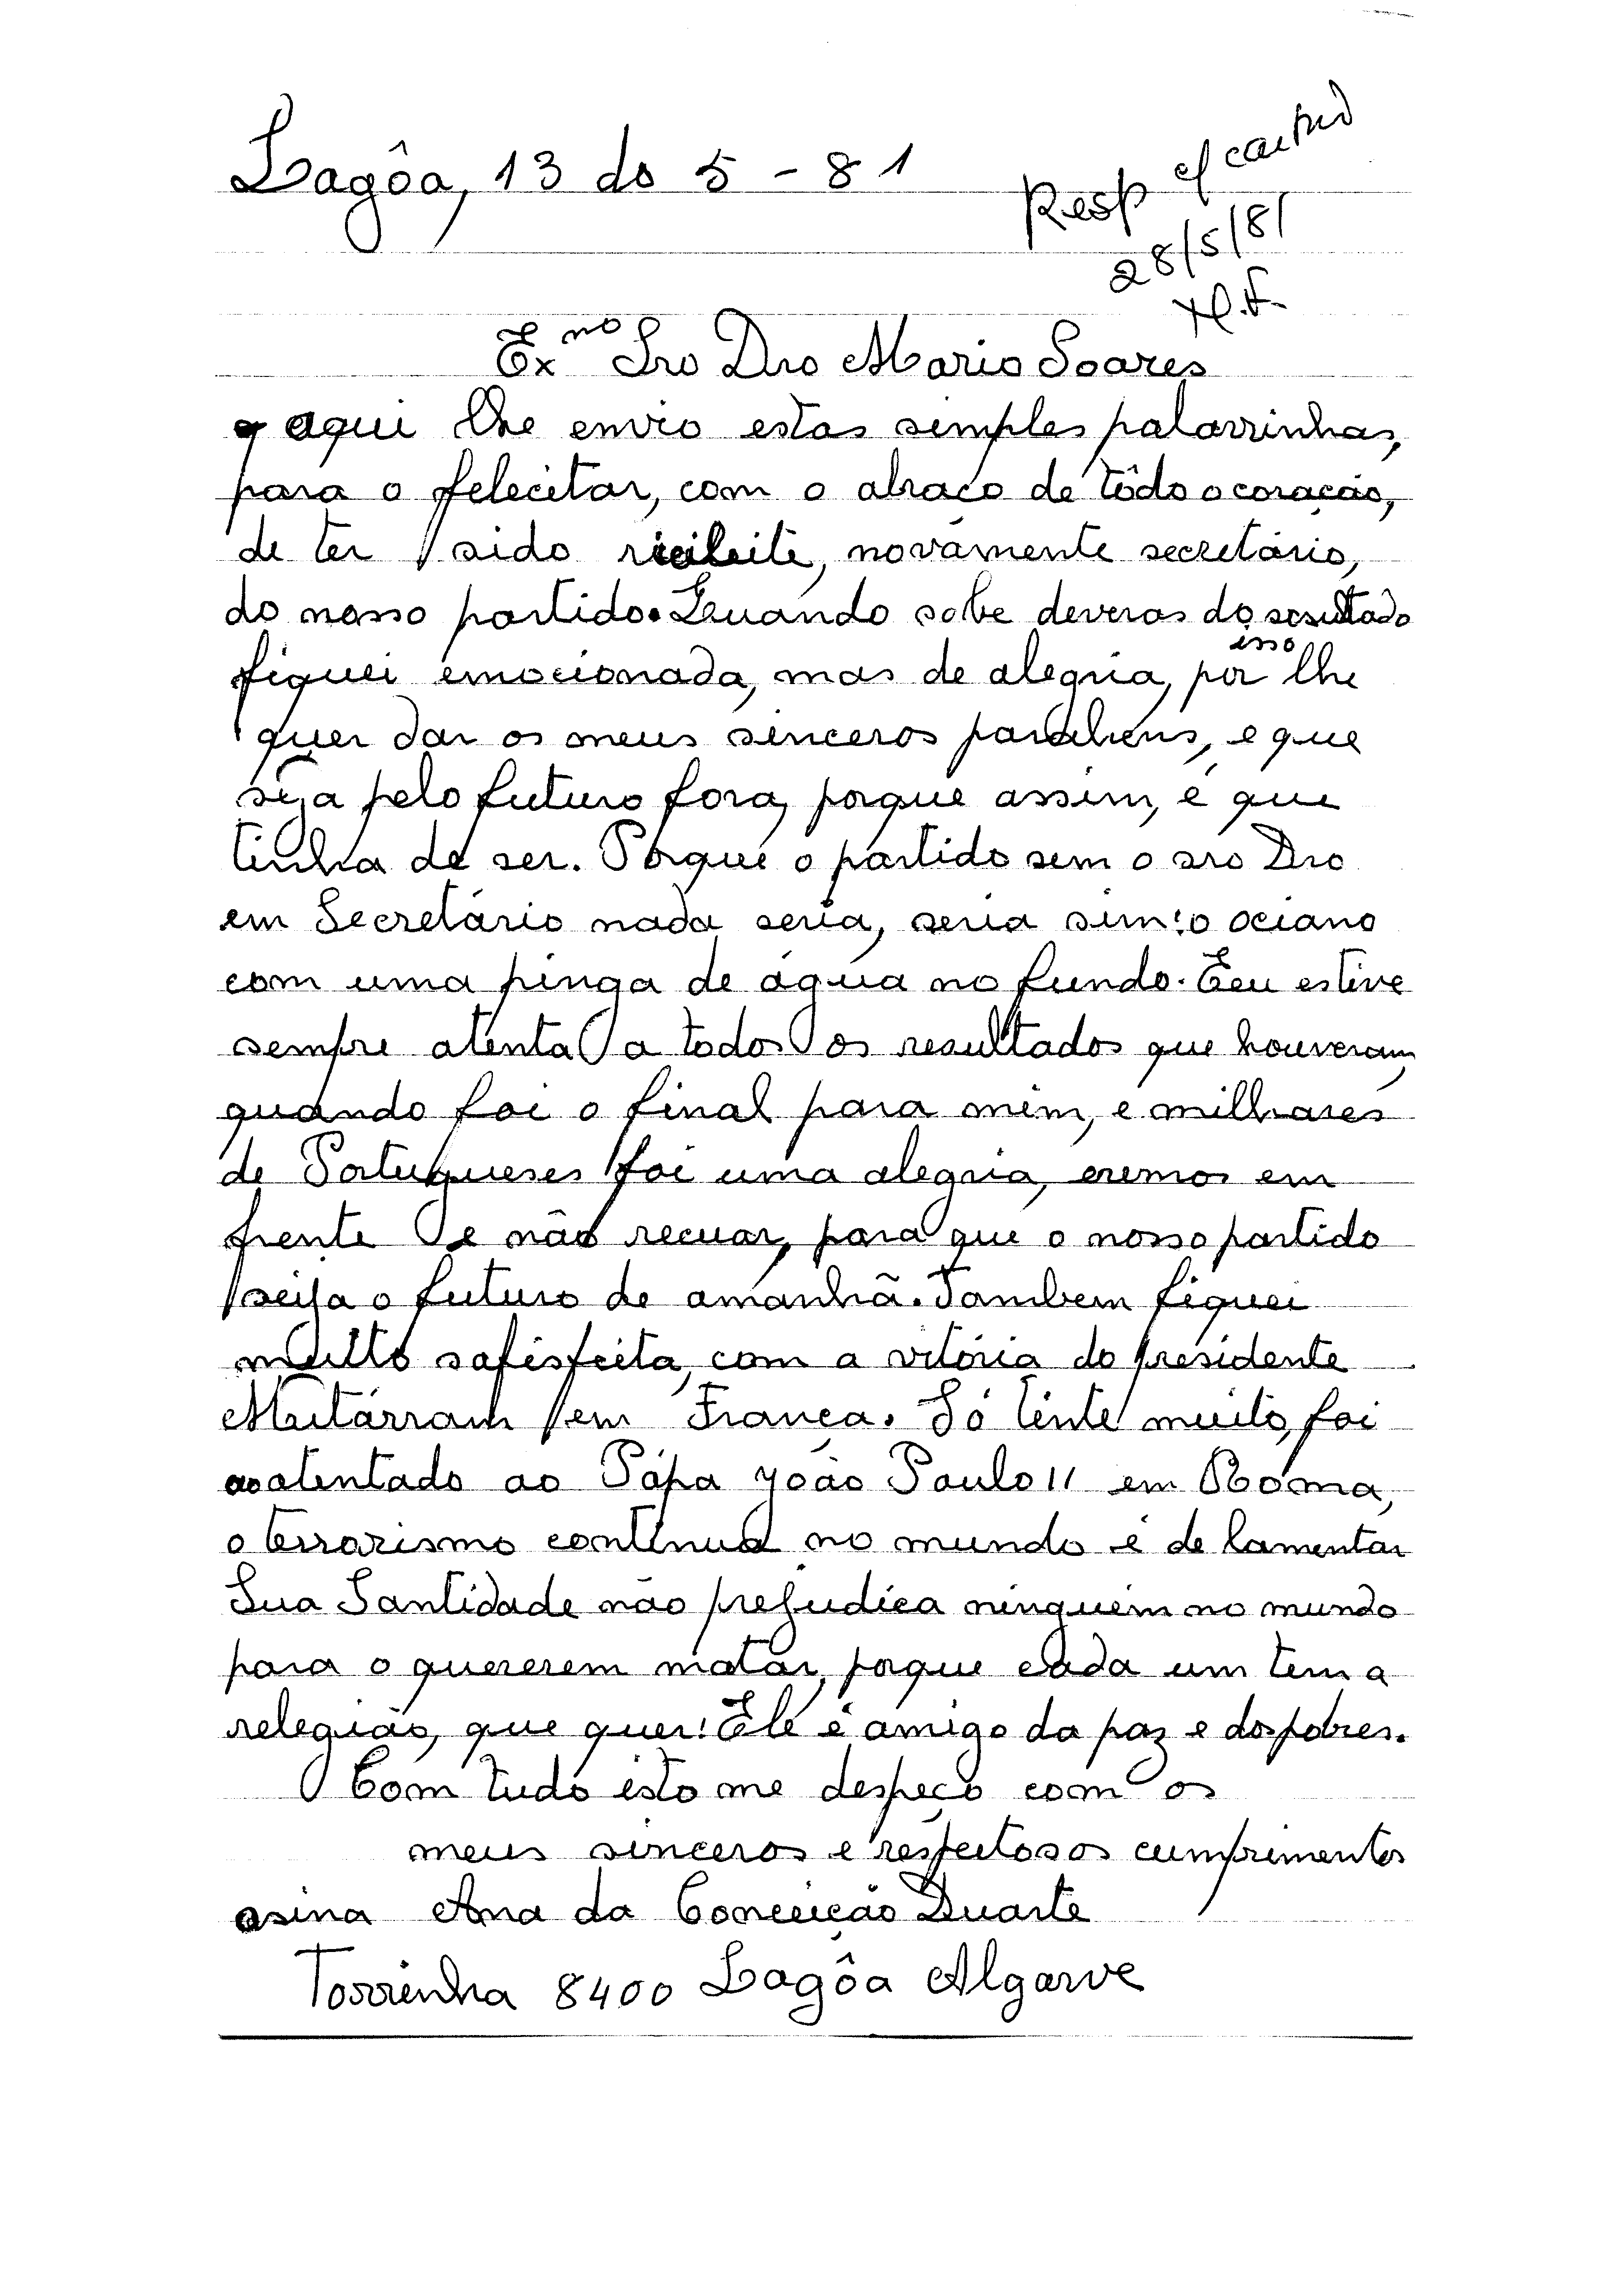 Lagôa, 13 do 5 - 81
Resp c/ cartão
28/5/81
Exmo Sro Dro Mario Soares
aqui lhe envio estas simples palavrinhas,
para o felecitar, com o abraço de tôdo o coração,
de ter sido novamente secretário,
do nosso partido. Quando sobe deveras do resultado
fiquei emocionada, mas de alegria, por isso lhe
quer dar os meus sinceros parabens, e que
seja pelo futuro fora, porque assim, é que
tinha de ser. Porque o partido sem o sro Dro
em Secretário nada seria, seria sim: o ociano
com uma pinga de água no fundo. Eeu estive
sempre atenta a todos os resultados que houveram,
quando foi o final para mim, e milhares
de Portugueses foi uma alegria, eremos em
frente e não recuar, para que o nosso partido
seija o futuro de amanhã. Tambem fiquei
muito safisfeita, com a vitória do presidente
Mitárram em França. Só tinte muito, foi
ao atentado ao Pápa João Paulo II em Roma,
o terrorismo continua no mundo é de lamentar
Sua Santidade não prejudica ninguém no mundo
para o quererem matar, porque cada um tem a
relegião, que quer! Ele é amigo da paz e dos pobres.
Com tudo isto me despeço com os
meus sinceros e respeitosos cumprimentos
asina Ana da Conceição Duarte
Torrinha 8400 Lagôa Algarve